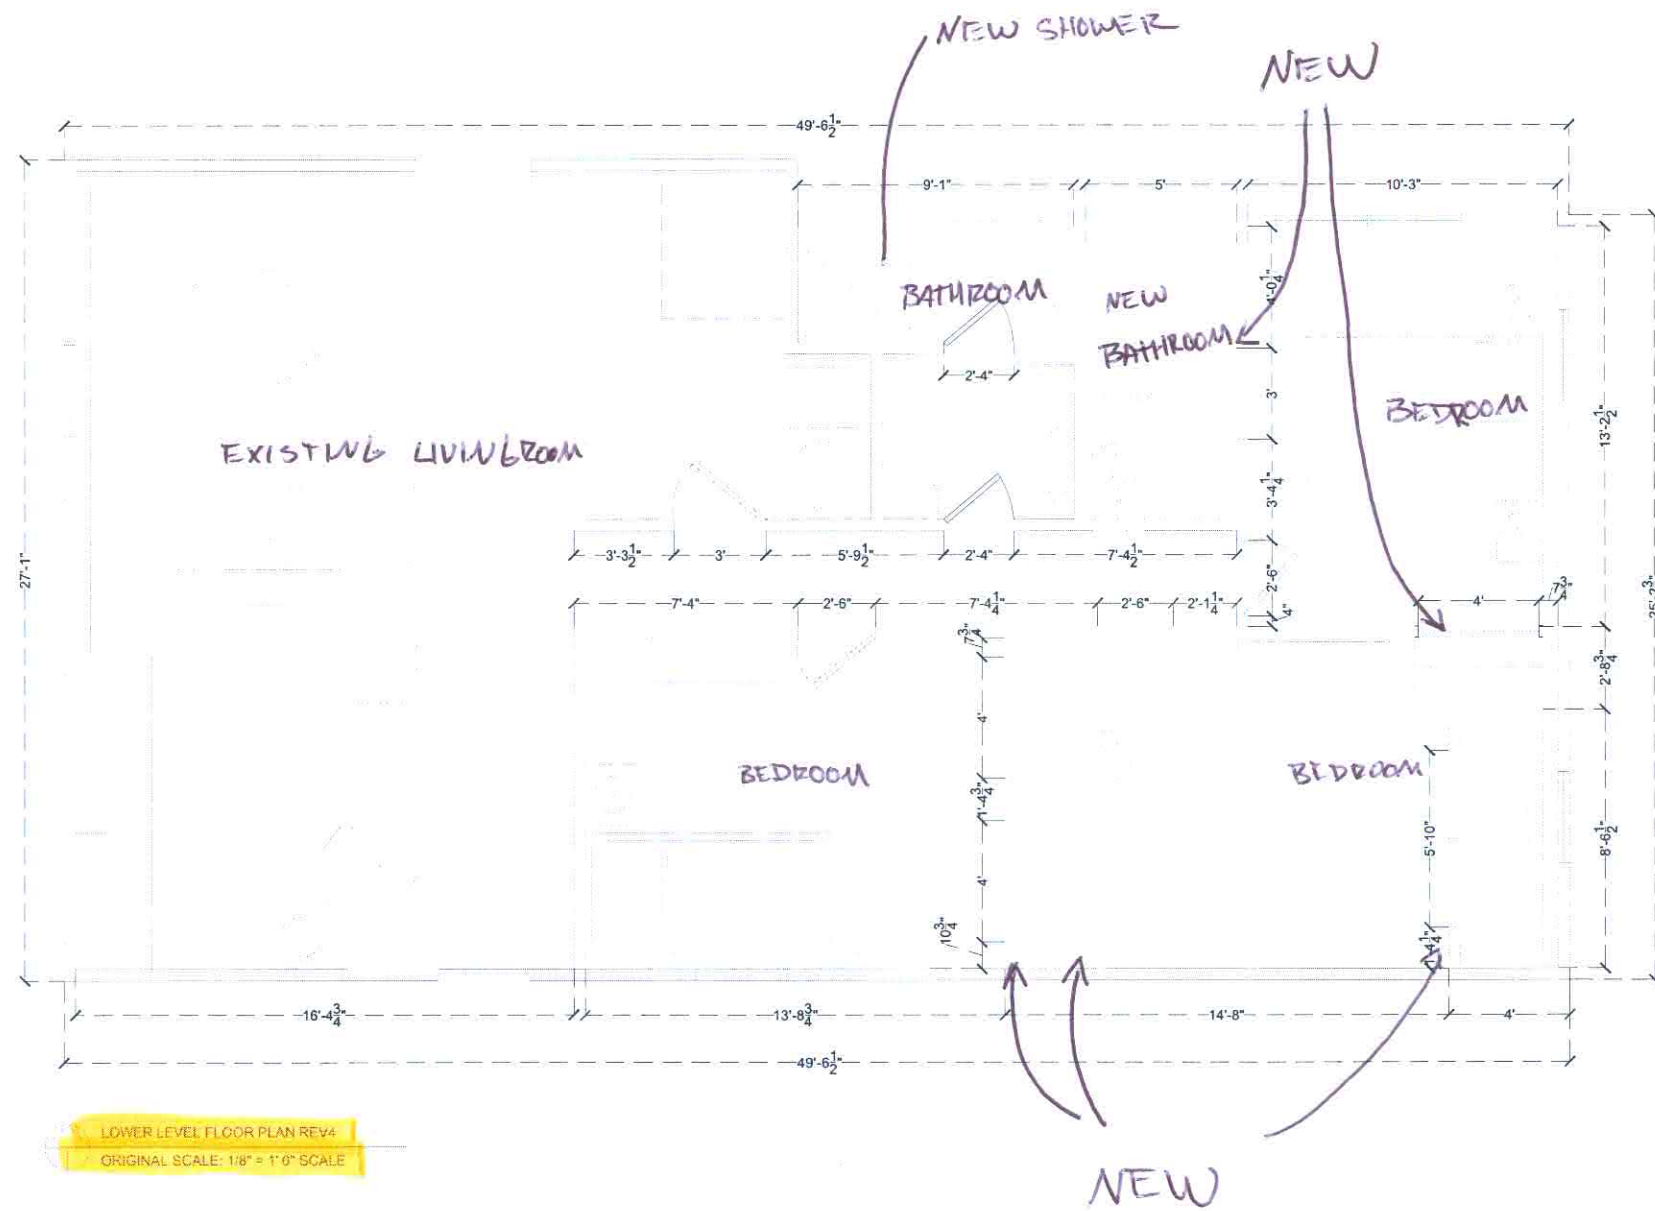 NEW SHOWER
NEW
49'-6 1/2"
9'-1"
5'
10'-3"
4'-0 1/4"
BATHROOM
NEW
BATHROOM
2'-4"
3'
BEDROOM
13'-2 1/2"
EXISTING LIVINGROOM
3'-4 1/4"
27'-1"
3'-3 1/2"
3'
5'-9 1/2"
2'-4"
7'-4 1/2"
2'-6"
7'-4"
2'-6"
7'-4 1/4"
2'-6"
2'-1 1/4"
4"
4'
7 3/4"
7 3/4"
2'-8 3/4"
4'
BEDROOM
BEDROOM
1'-4 3/4"
5'-10"
8'-6 1/2"
4'
10 3/4"
16'-4 3/4"
13'-8 3/4"
14'-8"
4'
49'-6 1/2"
LOWER LEVEL FLOOR PLAN REV4
ORIGINAL SCALE: 1/8" = 1'0" SCALE
NEW